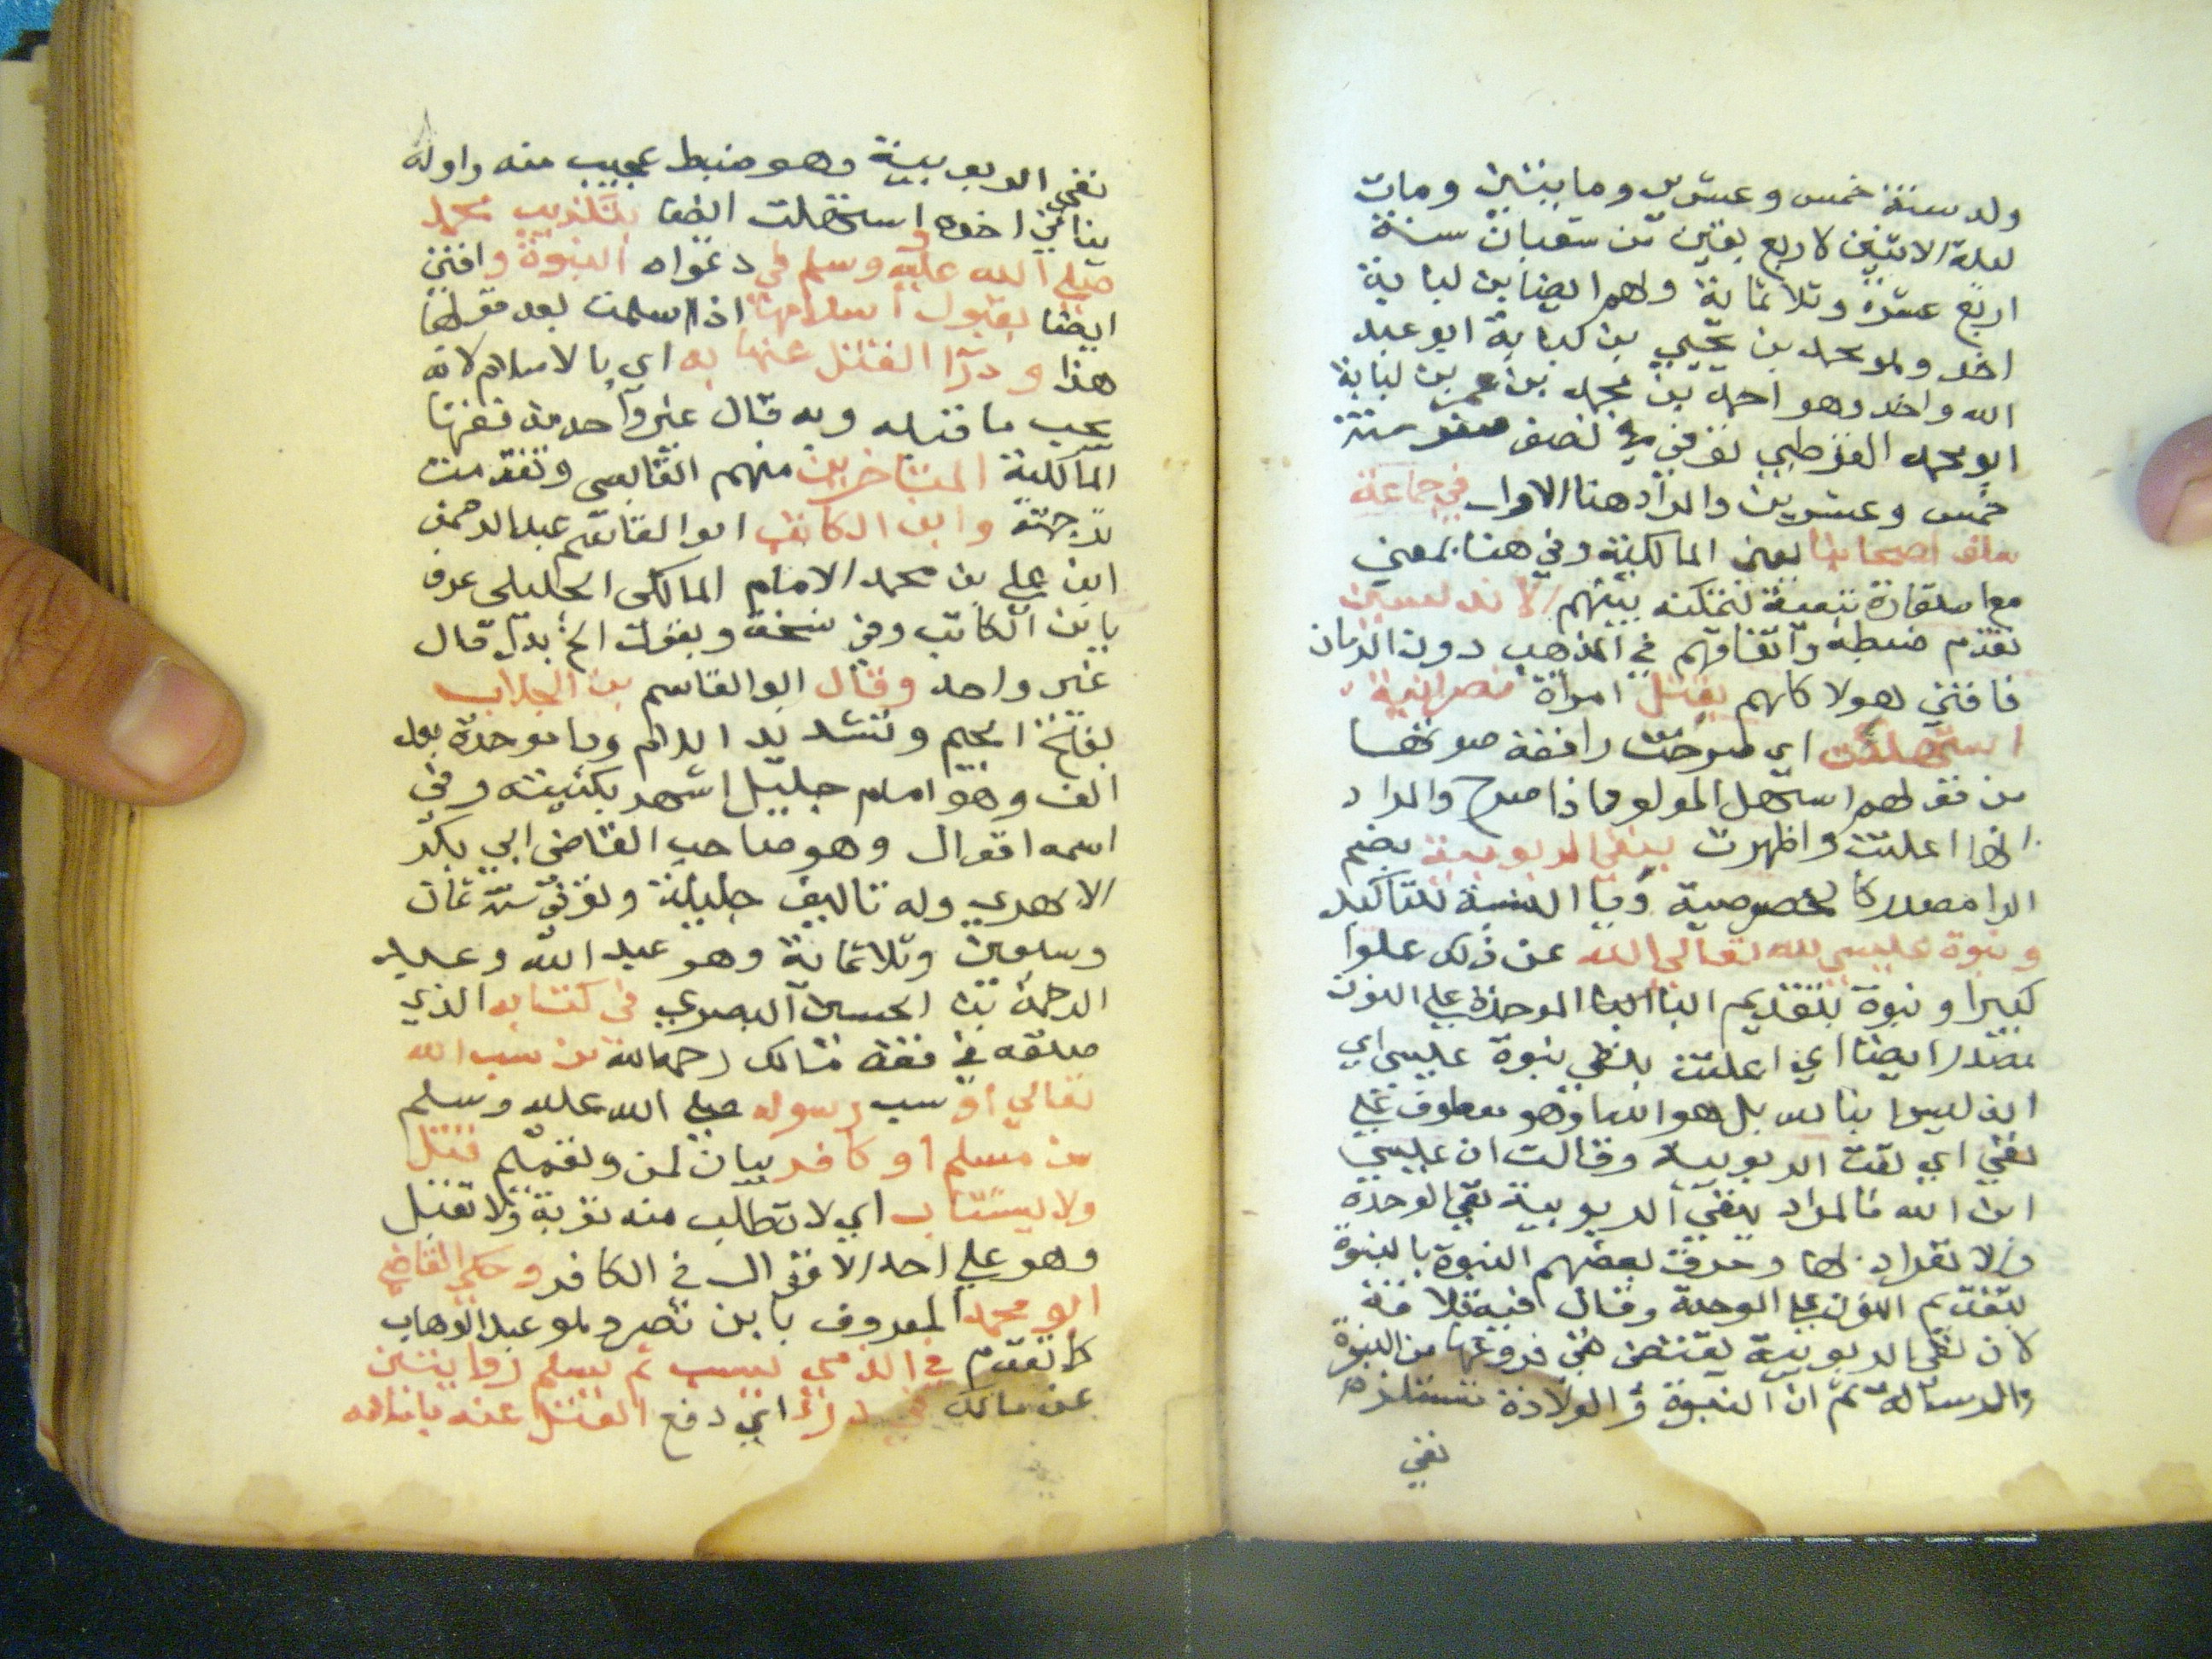 ولد سنة خمس وعشرين ومايتين ومات
ليلة الاثنين لاربع بقين من شعبان سنة
اربع عشرة وثلاثماية ولهم ايضا ابن لبابة
اخر ولهو محمد بن يحيي بن لبابة ابو عبد
الله واخر وهو احمد بن محمد بن عمر بن لبابة
ابو محمد القرطبي توفي نصف صفر سنة
خمس وعشرين والمراد هنا الاول في جماعة
سلف اصحابنا يعني المالكية وفي هنا بمعني
مع استعارة تبعية لتمكنه بينهم الاندلسيين
تقدم ضبطه واتفاقهم في المذهب دون الزمان
فافتي هولا كلهم بقتل امراة نصرانية
استهلت اي صرخت رافعة صوتها
من قولهم استهل المولود اذا صرخ والمراد
انها اعلنت واظهرت بنفي الربوبية بضم
الرا مصدر كالخصوصية ويا النسبة للتاكيد
وبنوة عيسي لله تعالي الله عن ذلك علوا
كبيرا وبنوة بتقديم البا البا الموحدة علي النون
مصدر ايضا اي اعلنت بنفي بنوة عيسي اي
انه ليس ابنا لله بل هو الله وهو معطوف علي
نفي اي نفت الربوبية وقالت ان عيسي
ابن الله فالمراد بنفي الربوبية نفي الوحدة
والانفراد لها وحرف بعضهم النبوة بالبنوة
بتقديم النون علي الوحدة وقال فيه قلاقة
لان نفي الربوبية يقتضي نفي فروعها من النبوة
والرسالة ثم ان البنوة والولادة تستلزم
نفي
نفي الربوبية وهو ضبط عجيب منه واوله
ينافي اخره استهلت ايضا بتكذيب محمد
صلي الله عليه وسلم في دعواه النبوة وافتي
ايضا بقبول اسلامها اذا اسلمت بعد قولها
هذا ودرا القتل عنها به اي بالاسلام لانه
يجب ما قبله وبه قال غير واحد من فقها
المالكية المتاخرين منهم القابسي وتقدمت
ترجمته وابن الكاتب ابو القاسم عبد الرحمن
ابن علي بن محمد الامام المالكي الجليلي عرف
بابن الكاتب وفي نسخة وبقول الخ بدل قال
غير واحد وقال ابو القاسم بن الجلاب
بفتح الجيم وتشديد اللام وبا موحدة بعد
الف وهو امام جليل اشهر بكنيته وفي
اسمه اقوال وهو صاحب القاضي ابي بكر
الابهري وله تاليف جليلة وتوفي سنة ثمان
وسبعين وثلاثماية وهو عبد الله وعبيد
الرحمن بن الحسين البصري في كتابه الذي
صنفه في فقه مالك رحمه الله من سب الله
تعالي او سب رسوله صلي الله عليه وسلم
من مسلم او كافر بيان لمن وتعميم قتل
ولا يستتاب اي لا تطلب منه توبة ولا تقبل
وهو علي احد الاقوال في الكافر وحكي القاضي
ابو محمد المعروف بابن نصر ولهو عبد الوهاب
كما تقدم في الذمي يسب ثم يسلم روايتين
عن مالك في درء اي دفع القتل عنه باسلامه